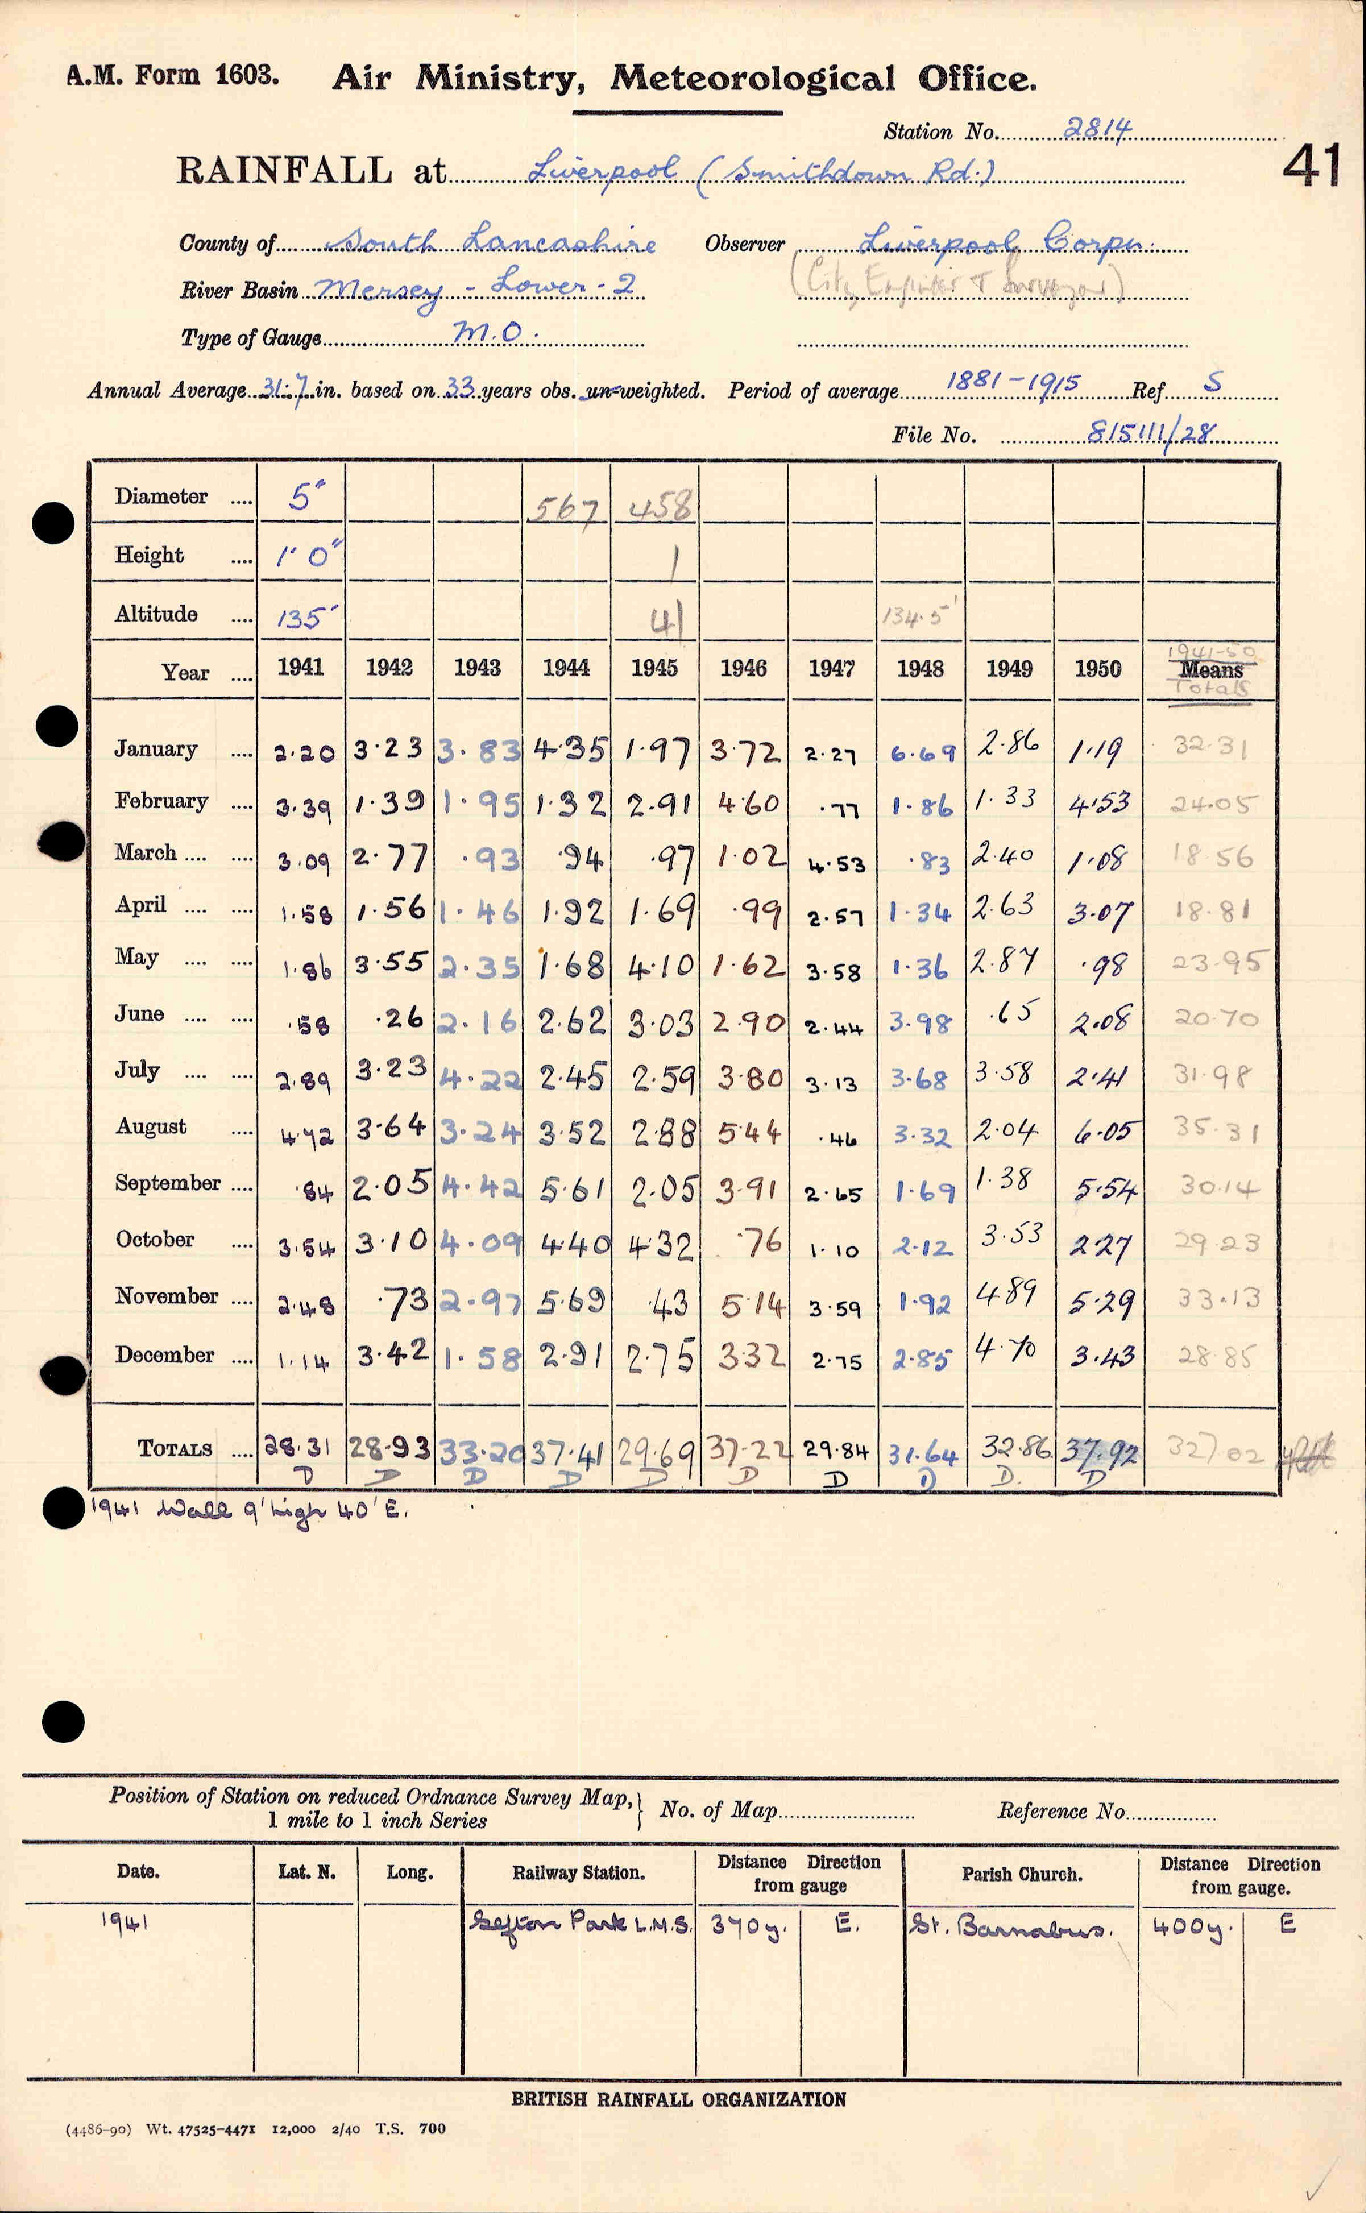 A.M. Form 1603. Air Ministry, Meteorological Office.
Station No. 2814
41
RAINFALL at Liverpool (Smithdown Rd.)
County of South Lancashire Observer Liverpool Corpn.
River Basin Mersey - Lower - 2 (City Engineer & Surveyor)
Type of Gauge M.O.
Annual Average 31.7 in. based on 33 years obs. un-weighted. Period of average 1881-1915 Ref S
File No. 815111/28
Diameter .... 5" 567 458
Height .... 1' 0" 1
Altitude .... 135' 41 134.5'
Year .... 1941 1942 1943 1944 1945 1946 1947 1948 1949 1950 1941-50 Means Totals
January .... 2.20 3.23 3.83 4.35 1.97 3.72 2.27 6.69 2.86 1.19 32.31
February .... 3.39 1.39 1.95 1.32 2.91 4.60 .77 1.86 1.33 4.53 24.05
March .... .... 3.09 2.77 .93 .94 .97 1.02 4.53 .83 2.40 1.08 18.56
April .... .... 1.58 1.56 1.46 1.92 1.69 .99 2.57 1.34 2.63 3.07 18.81
May .... .... 1.86 3.55 2.35 1.68 4.10 1.62 3.58 1.36 2.87 .98 23.95
June .... .... .58 .26 2.16 2.62 3.03 2.90 2.44 3.98 .65 2.08 20.70
July .... .... 2.89 3.23 4.22 2.45 2.59 3.80 3.13 3.68 3.58 2.41 31.98
August .... 4.72 3.64 3.24 3.52 2.88 5.44 .46 3.32 2.04 6.05 35.31
September .... .84 2.05 4.42 5.61 2.05 3.91 2.65 1.69 1.38 5.54 30.14
October .... 3.54 3.10 4.09 4.40 4.32 .76 1.10 2.12 3.53 2.27 29.23
November .... 2.48 .73 2.97 5.69 .43 5.14 3.59 1.92 4.89 5.29 33.13
December .... 1.14 3.42 1.58 2.91 2.75 3.32 2.75 2.85 4.70 3.43 28.85
TOTALS .... 28.31 28.93 33.20 37.41 29.69 37.22 29.84 31.64 32.86 37.92 327.02
D D D D D D D D D. D
1941 Wall 9' high 40' E.
Position of Station on reduced Ordnance Survey Map, 1 mile to 1 inch Series } No. of Map Reference No.
Date. Lat. N. Long. Railway Station. Distance Direction from gauge Parish Church. Distance Direction from gauge.
1941 Sefton Park L.M.S. 370y. E. St. Barnabus. 400y. E
BRITISH RAINFALL ORGANIZATION
(4486-90) Wt. 47525-4471 12,000 2/40 T.S. 700